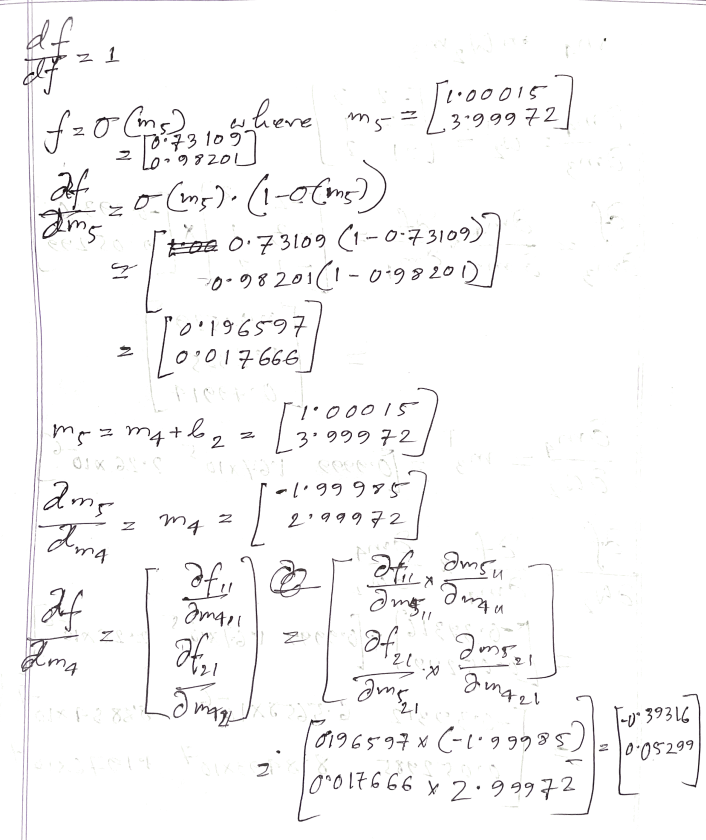 df/df = 1
f = σ(m₅) where m₅ = [1.00015; 3.99972]
= [0.73109; 0.98201]
∂f/∂m₅ = σ(m₅)·(1-σ(m₅))
= [0.73109(1-0.73109); 0.98201(1-0.98201)]
= [0.196597; 0.017666]
m₅ = m₄ + b₂ = [1.00015; 3.99972]
∂m₅/∂m₄ = m₄ = [-1.99985; 2.99972]
∂f/∂m₄ = [∂f₁₁/∂m₄₁₁; ∂f₂₁/∂m₄₂₁] = [∂f₁₁/∂m₅₁₁ × ∂m₅₁₁/∂m₄₁₁; ∂f₂₁/∂m₅₂₁ × ∂m₅₂₁/∂m₄₂₁]
= [0196597 × (-1.99985); 0.017666 × 2.99972] = [-0.39316; 0.05299]